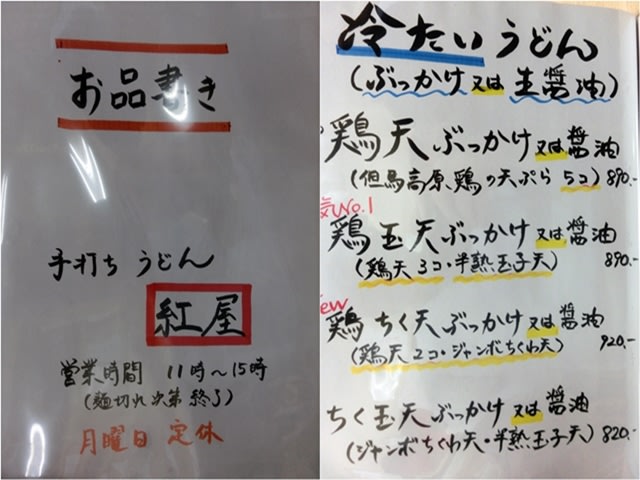 お品書き
手打ち うどん
紅屋
営業時間 11時～15時
(麺切れ次第終了)
月曜日 定休
冷たいうどん
(ぶっかけ又は生醤油)
鶏天ぶっかけ又は醤油
(但馬高原鶏の天ぷら 5コ) 890.-
気No.1
鶏玉天ぶっかけ又は醤油
(鶏天3コ・半熟玉子天) 890.-
New
鶏ちく天ぶっかけ又は醤油
(鶏天2コ・ジャンボちくわ天) 920.-
ちく玉天ぶっかけ又は醤油
(ジャンボちくわ天・半熟玉子天) 820.-